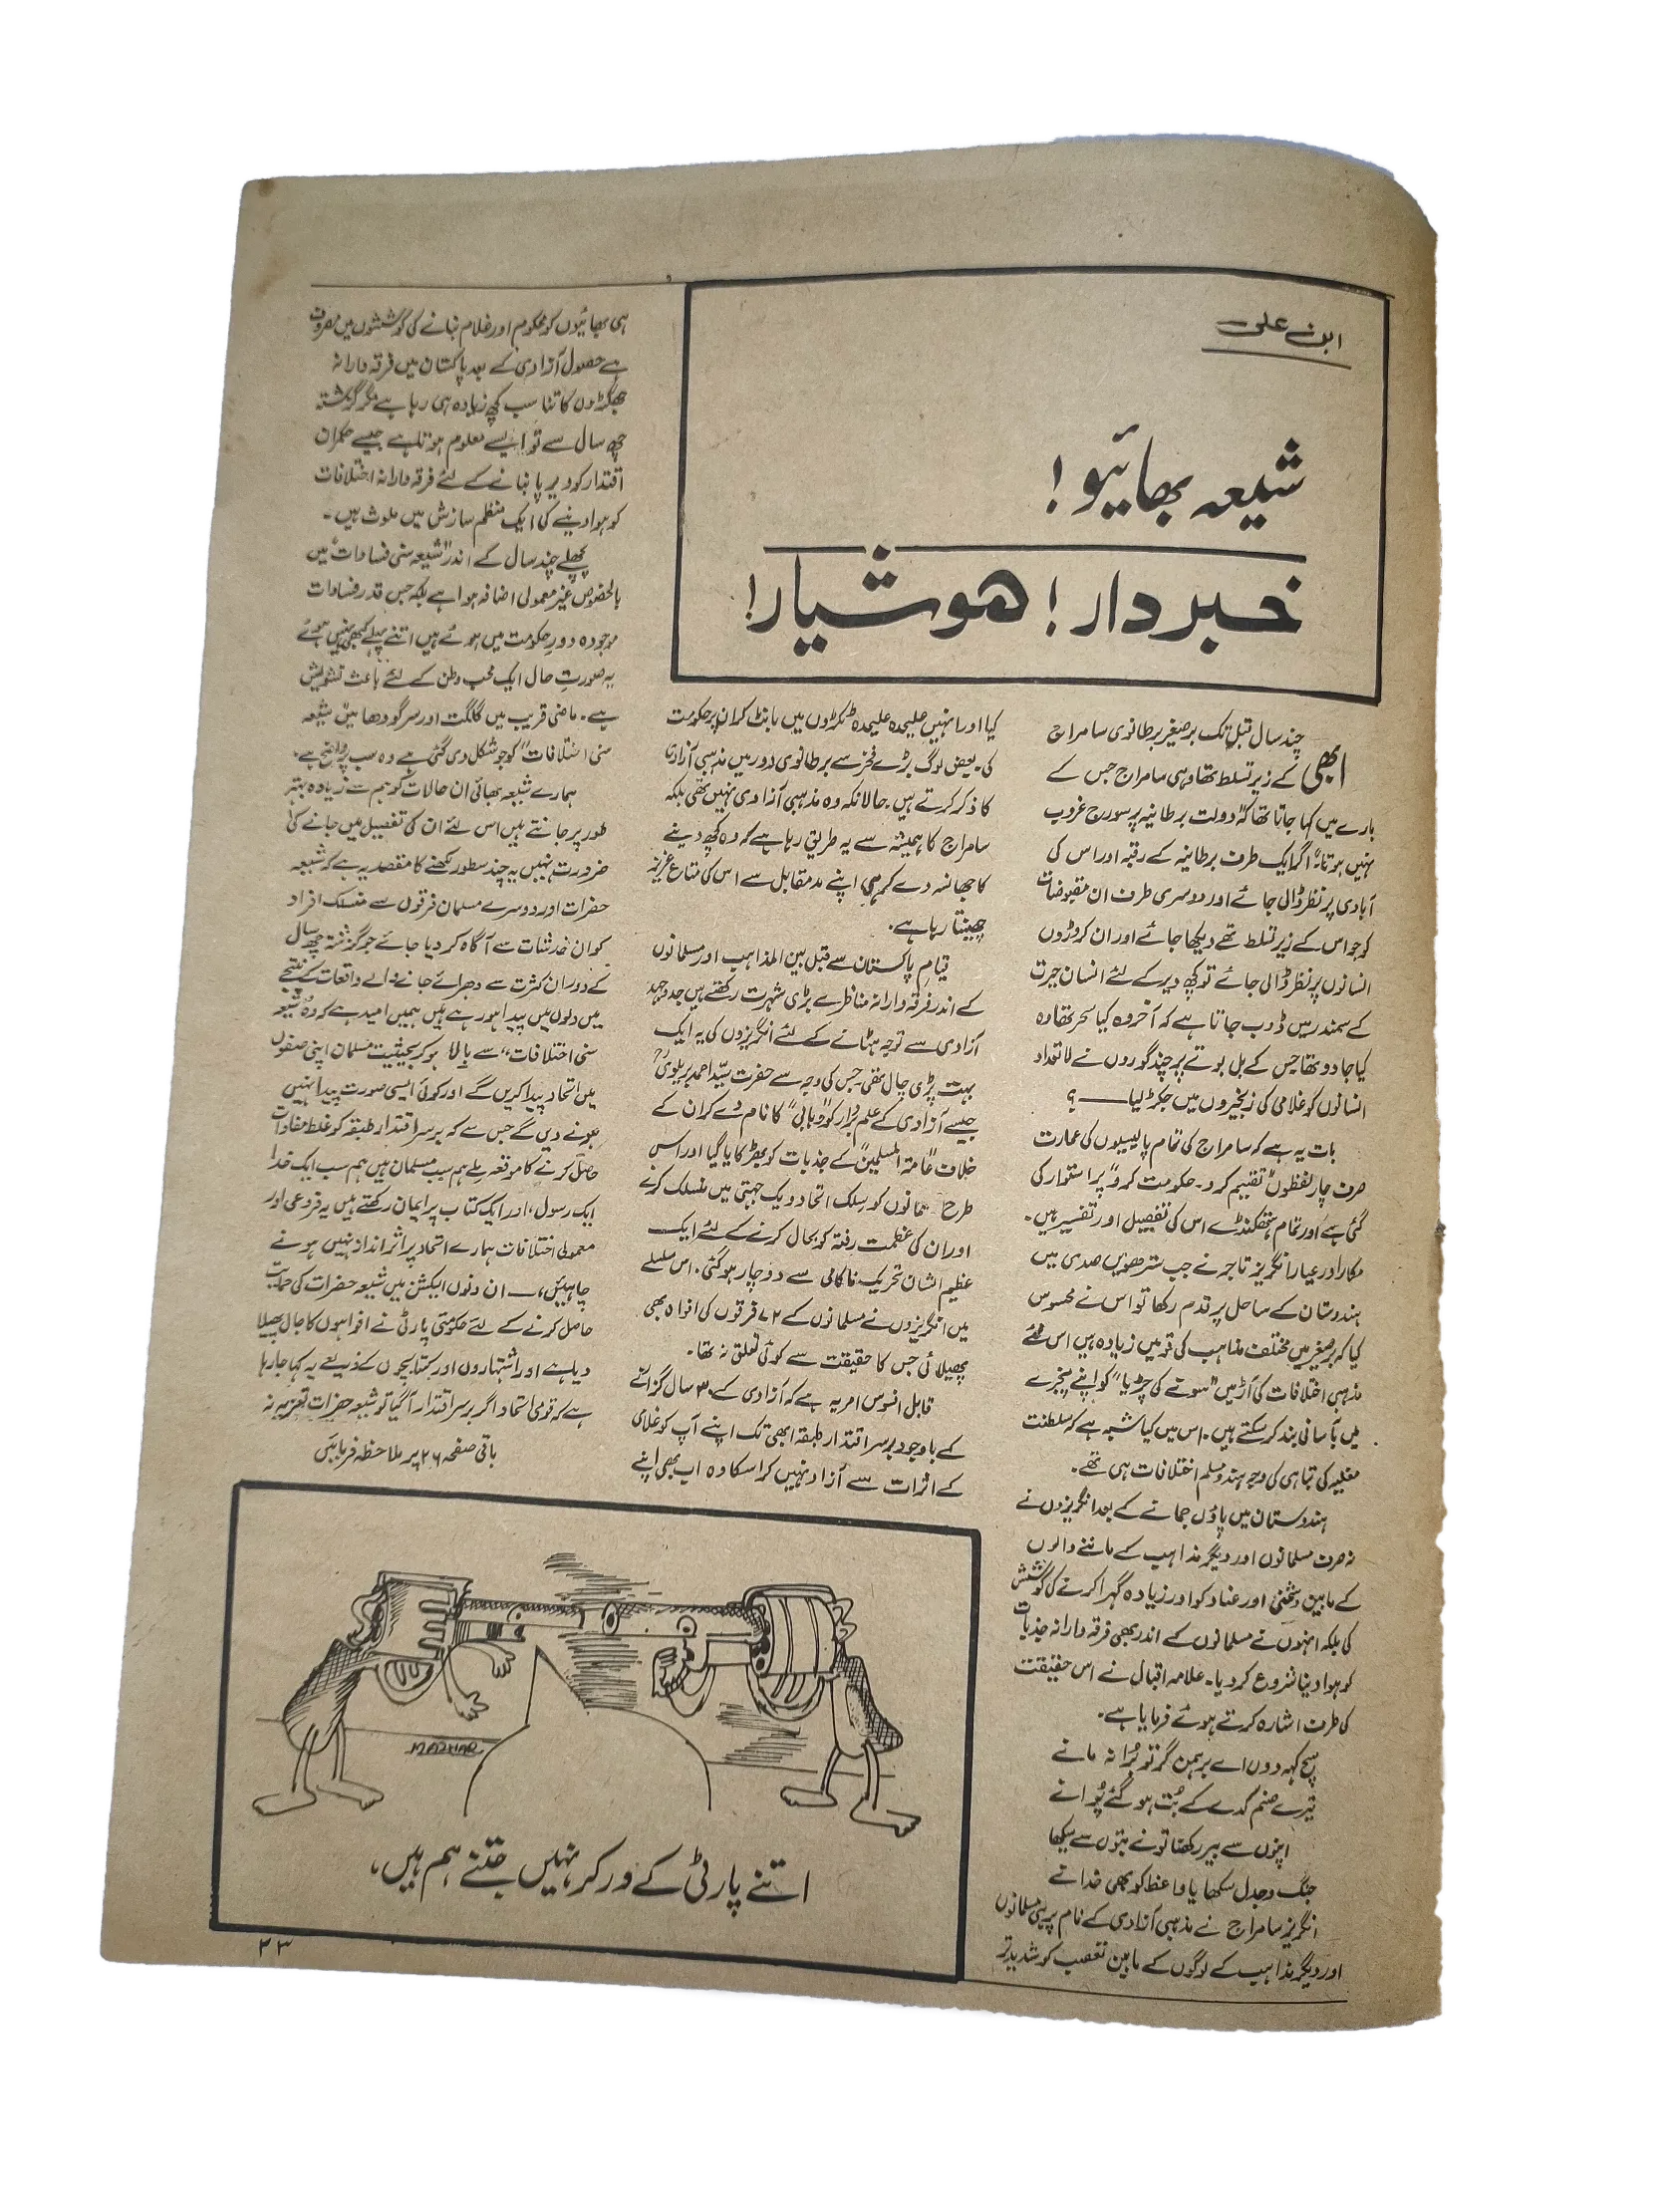 ابنِ علی
شیعہ بھائیو!
خبردار! ہوشیار!
ابھی چند سال قبل تک برصغیر برطانوی سامراج
کے زیر تسلط تھا وہی سامراج جس کے
بارے میں کہا جاتا تھا کہ "دولت برطانیہ پر سورج غروب
نہیں ہوتا"۔ اگر ایک طرف برطانیہ کے رقبہ اور اس کی
آبادی پر نظر ڈالی جائے اور دوسری طرف ان مقبوضات
کو جو اس کے زیر تسلط تھے دیکھا جائے اور ان کروڑوں
انسانوں پر نظر ڈالی جائے تو کچھ دیر کے لئے انسان حیرت
کے سمندر میں ڈوب جاتا ہے کہ آخر وہ کیا سحر تھا وہ
کیا جادو تھا جس کے بل بوتے پر چند گوروں نے لا تعداد
انسانوں کو غلامی کی زنجیروں میں جکڑ لیا—؟
بات یہ ہے کہ سامراج کی تمام پالیسیوں کی عمارت
صرف چار لفظوں "تقیم کرو۔ حکومت کرو" پر استوار کی
گئی ہے اور تمام ہتھکنڈے اس کی تفصیل اور تفسیر ہیں۔
مکار اور عیار انگریز تاجر نے جب سترھویں صدی میں
ہندوستان کے ساحل پر قدم رکھا تو اس نے محسوس
کیا کہ برصغیر میں مختلف مذاہب کی قومیں زیادہ ہیں اس لئے
مذہبی اختلافات کی آڑ میں "سونے کی چڑیا" کو اپنے پنجرے
میں بآسانی بند کر سکتے ہیں۔ اس میں کیا شبہ ہے کہ سلطنت
مغلیہ کی تباہی کی وجہ ہندو مسلم اختلافات ہی تھے۔
ہندوستان میں پاؤں جمانے کے بعد انگریزوں نے
نہ صرف مسلمانوں اور دیگر مذاہب کے ماننے والوں
کے مابین دشمنی اور عناد کو اور زیادہ گہرا کرنے کی کوشش
کی بلکہ انہوں نے مسلمانوں کے اندر بھی فرقہ وارانہ جذبات
کو ہوا دینا شروع کر دیا۔ علامہ اقبال نے اس حقیقت
کی طرف اشارہ کرتے ہوئے فرمایا ہے۔
سچ کہہ دوں اے برہمن گر تو بُرا نہ مانے
تیرے صنم کدے کے بُت ہو گئے پُرانے
اپنوں سے بیر رکھنا تو نے بتوں سے سیکھا
جنگ و جدل سکھایا واعظ کو بھی خدا نے
انگریز سامراج نے مذہبی آزادی کے نام پر ہی مسلمانوں
اور دیگر مذاہب کے لوگوں کے مابین تعصب کو شدید تر
کیا اور انہیں علیحدہ علیحدہ ٹکڑوں میں بانٹ کر ان پر حکومت
کی۔ بعض لوگ بڑے فخر سے برطانوی دور میں مذہبی آزادی
کا ذکر کرتے ہیں۔ حالانکہ وہ مذہبی آزادی نہیں تھی بلکہ
سامراج کا ہمیشہ سے یہ طریق رہا ہے کہ وہ کچھ دینے
کا جھانسہ دے کر ہی اپنے مد مقابل سے اس کی متاع عزیز
چھینتا رہا ہے۔
قیامِ پاکستان سے قبل بین المذاہب اور مسلمانوں
کے اندر فرقہ وارانہ مناظرے بڑی شہرت رکھتے ہیں جدوجہد
آزادی سے توجہ ہٹانے کے لئے انگریزوں کی یہ ایک
بہت بڑی چال تھی جس کی وجہ سے حضرت سیّد احمد بریلویؒ
جیسے آزادی کے علم بردار کو "وہابی" کا نام دے کر ان کے
خلاف "عامتہ المسلمین" کے جذبات کو بھڑکایا گیا اور اس
طرح مسلمانوں کو سلک اتحاد و یک جہتی میں منسلک کرنے
اور ان کی عظمت رفتہ کو بحال کرنے کے لئے ایک
عظیم الشان تحریک ناکامی سے دوچار ہو گئی۔ اس سلسلے
میں انگریزوں نے مسلمانوں کے ۷۲ فرقوں کی افواہ بھی
پھیلائی جس کا حقیقت سے کوئی تعلق نہ تھا۔
قابل افسوس امر یہ ہے کہ آزادی کے ۳۰ سال گزرنے
کے باوجود برسر اقتدار طبقہ ابھی تک اپنے آپ کو غلامی
کے اثرات سے آزاد نہیں کرا سکا وہ اب بھی اپنے
ہی بھائیوں کو محکوم اور غلام بنانے کی کوششوں میں مصروف
ہے حصول آزادی کے بعد پاکستان میں فرقہ وارانہ
جھگڑوں کا تناسب کچھ زیادہ ہی رہا ہے مگر گزشتہ
چھ سال سے تو ایسے معلوم ہوتا ہے جیسے حکمران
اقتدار کو دیرپا بنانے کے لئے فرقہ وارانہ اختلافات
کو ہوا دینے کی ایک منظم سازش میں ملوث ہیں۔
پچھلے چند سال کے اندر "شیعہ سنی فسادات" میں
بالخصوص غیر معمولی اضافہ ہوا ہے بلکہ جس قدر فسادات
موجودہ دور حکومت میں ہوئے ہیں اتنے پہلے کبھی نہیں ہوئے
یہ صورتِ حال ایک محب وطن کے لئے باعث تشویش
ہے۔ ماضی قریب میں گلگت اور سرگودھا میں "شیعہ
سنی اختلافات" کو جو شکل دی گئی ہے وہ سب پر واضح ہے۔
ہمارے شیعہ بھائی ان حالات کو ہم سے زیادہ بہتر
طور پر جانتے ہیں اس لئے ان کی تفصیل میں جانے کی
ضرورت نہیں یہ چند سطور لکھنے کا مقصد یہ ہے کہ شیعہ
حضرات اور دوسرے مسلمان فرقوں سے منسلک افراد
کو ان خدشات سے آگاہ کر دیا جائے جو گزشتہ چھ سال
کے دوران کثرت سے دہرائے جانے والے واقعات کے نتیجے
میں دلوں میں پیدا ہو رہے ہیں ہمیں امید ہے کہ وہ "شیعہ
سنی اختلافات" سے بالا ہو کر بحیثیت مسلمان اپنی صفوں
میں اتحاد پیدا کریں گے اور کوئی ایسی صورت پیدا نہیں
ہونے دیں گے جس سے کہ برسر اقتدار طبقہ کو غلط مفادات
حاصل کرنے کا موقعہ ملے ہم سب مسلمان ہیں ہم سب ایک خدا
ایک رسول، اور ایک کتاب پر ایمان رکھتے ہیں یہ فروعی اور
معمولی اختلافات ہمارے اتحاد پر اثر انداز نہیں ہونے
چاہئیں،— ان دنوں الیکشن میں شیعہ حضرات کی حمایت
حاصل کرنے کے لئے حکومتی پارٹی نے افواہوں کا جال پھیلا
دیا ہے اور اشتہاروں اور کتابچوں کے ذریعے یہ کہا جا رہا
ہے کہ قومی اتحاد اگر برسر اقتدار آ گیا تو شیعہ حضرات تعزیہ نہ
باقی صفحہ ۲۶ پر ملاحظہ فرمائیں
MAZHAR
اتنے پارٹی کے ورکر نہیں جتنے ہم ہیں،
۲۳